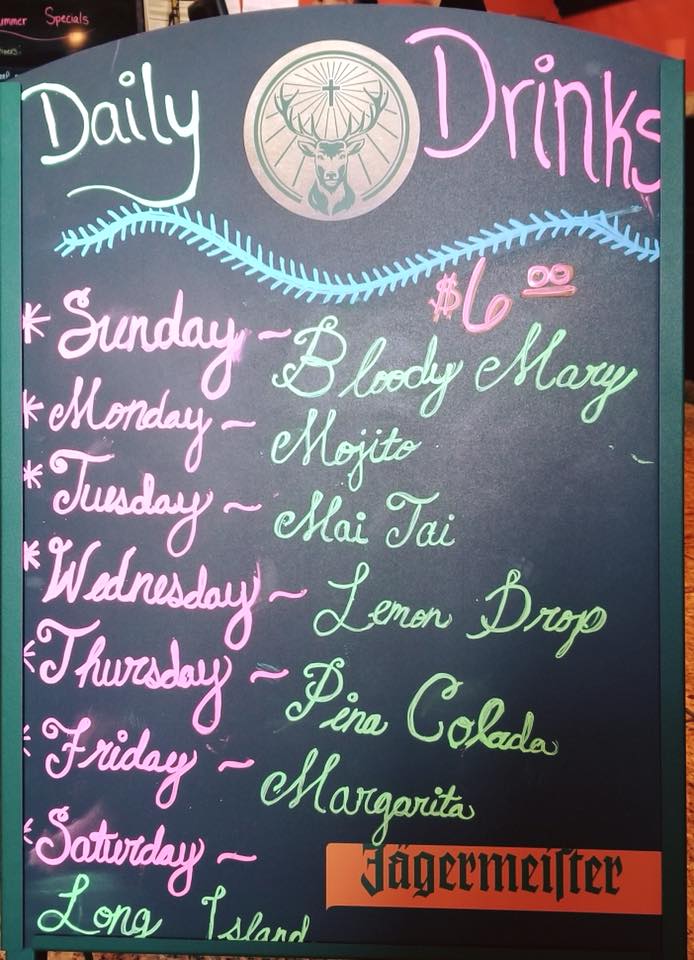 ummer Specials
Daily Drinks
$6.00
* Sunday ~ Bloody Mary
* Monday ~ Mojito
* Tuesday ~ Mai Tai
* Wednesday ~ Lemon Drop
* Thursday ~ Pina Colada
* Friday ~ Margarita
* Saturday ~
Long Island
Jägermeiſter